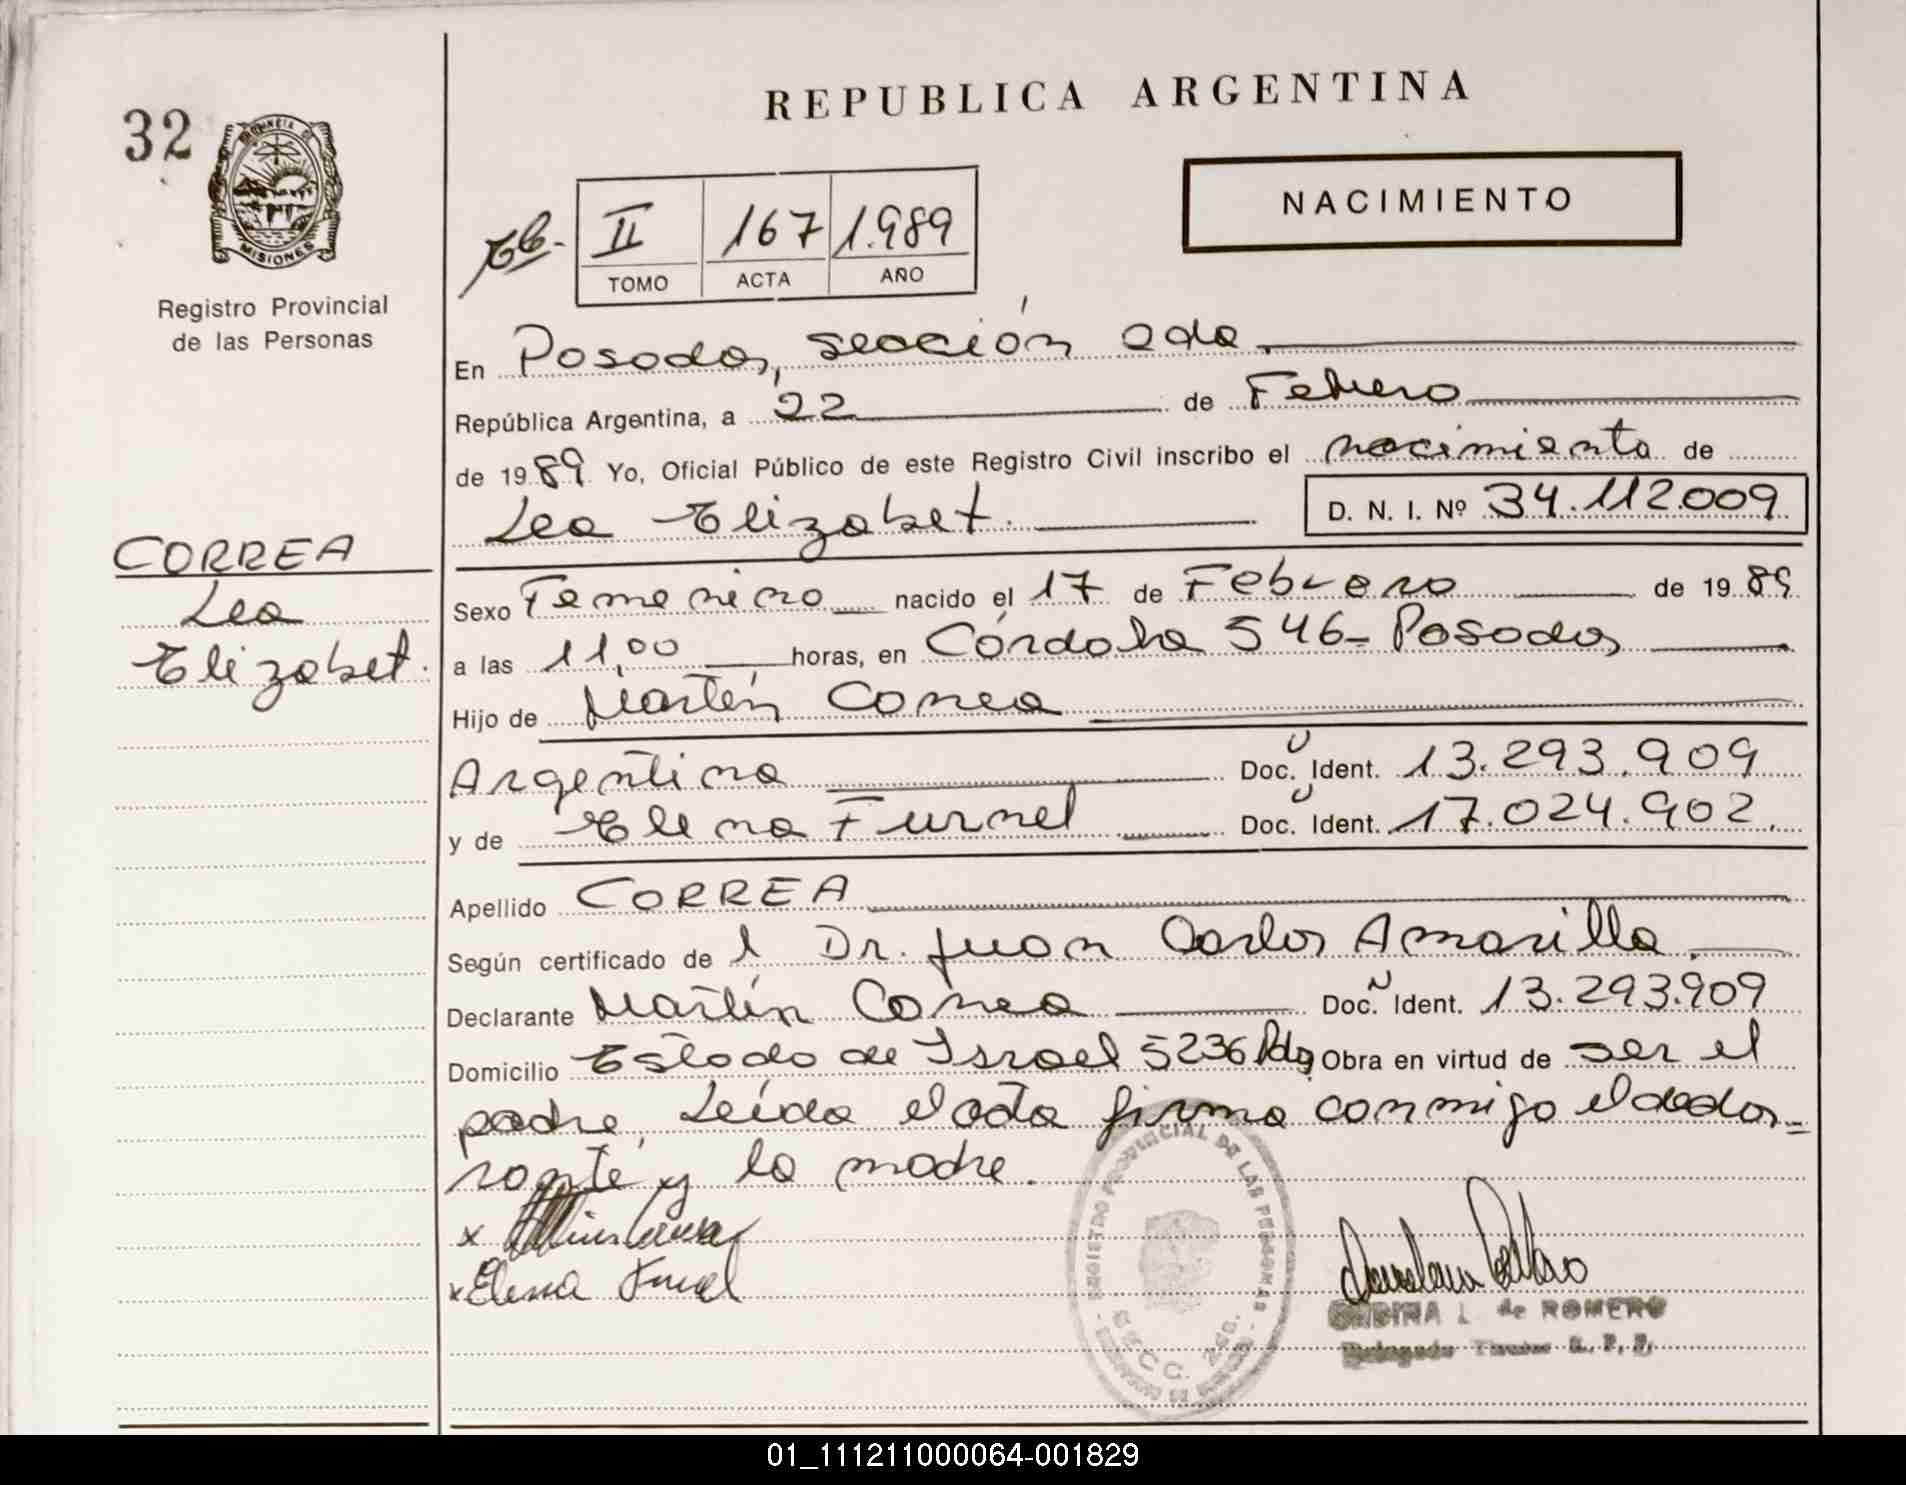 REPUBLICA ARGENTINA
32
PROVINCIA DE
MISIONES
Registro Provincial
de las Personas
NACIMIENTO
II 167 1.989
TOMO ACTA AÑO
En Posadas, sección 2da.
República Argentina, a 22 de Febrero
de 1989 Yo, Oficial Público de este Registro Civil inscribo el nacimiento de
Lea Elizabet. D. N. I. Nº 34.112.009
CORREA
Lea
Elizabet.
Sexo Femenino nacido el 17 de Febrero de 1989
a las 11,00 horas, en Córdoba 546- Posadas
Hijo de Martín Correa
Argentina Doc. Ident. 13.293.909
y de Elena Furnel Doc. Ident. 17.024.902.
Apellido CORREA
Según certificado del Dr. Juan Carlos Amarilla.
Declarante Martín Correa Doc. Ident. 13.293.909
Domicilio Estado de Israel 5236 Pdas Obra en virtud de ser el
padre, Leída el acta firma conmigo el decla-
rante y la madre.
x
x Elena Furnel
REGISTRO PROVINCIAL DE LAS PERSONAS
SECC. 2da.
L. de ROMERO
01_111211000064-001829